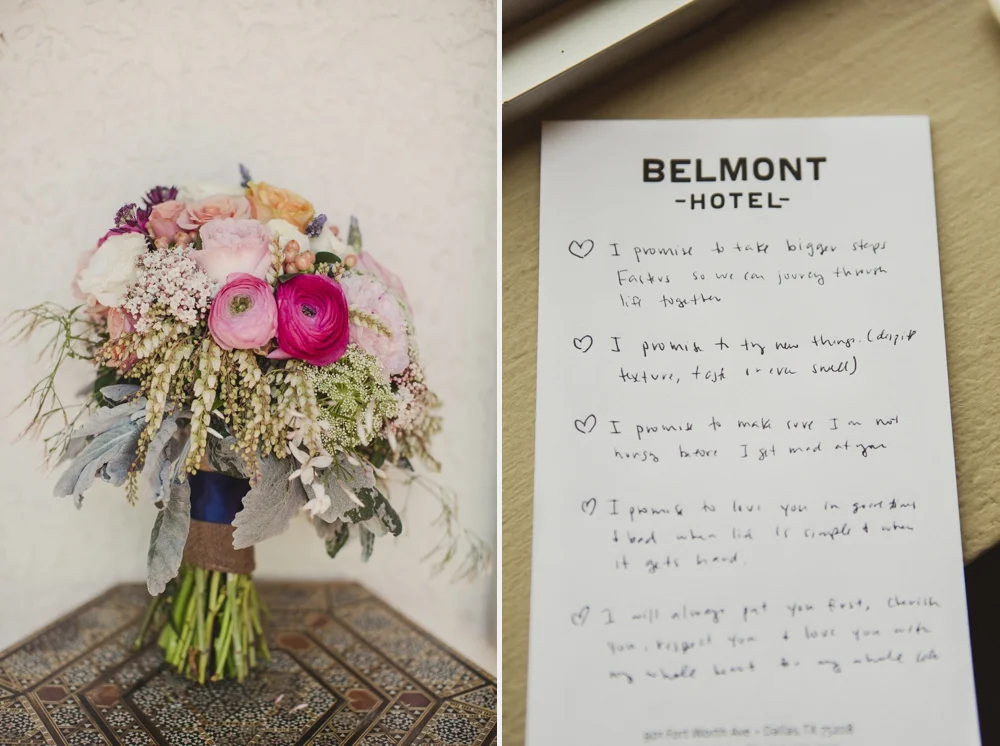 BELMONT
-HOTEL-
I promise to take bigger steps
Factus so we can journey through
life together
I promise to try new things. (despite
texture, taste or even smell)
I promise to make sure I'm not
hungry before I get mad at you
I promise to love you in good times
& bad when life is simple & when
it gets hard.
I will always put you first, cherish
you, respect you & love you with
my whole heart for my whole life
901 Fort Worth Ave - Dallas, TX 75208